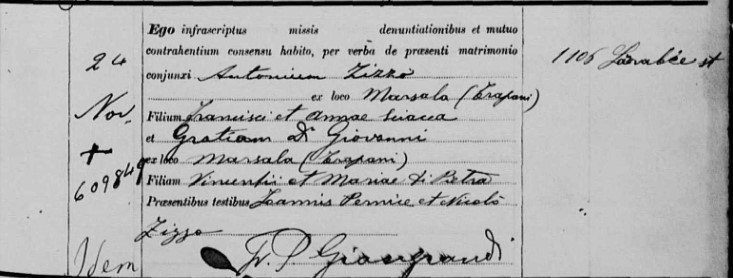 Ego infrascriptus missis denuntiationibus et mutuo
contrahentium consensu habito, per verba de præsenti matrimonio
24
conjunxi Antonium Zizzo
1106 Larabee st
ex loco Marsala (Trapani)
Nov.
Filium Francisci et Annae Sciacca
et Gratiam Di Giovanni
+
ex loco Marsala (Trapani)
609849
Filiam Vincentii et Mariae Di Pietra
Præsentibus testibus Joannis Pernice et Nicolò
Zizzo
Idem
Fr. P. Giangrandi